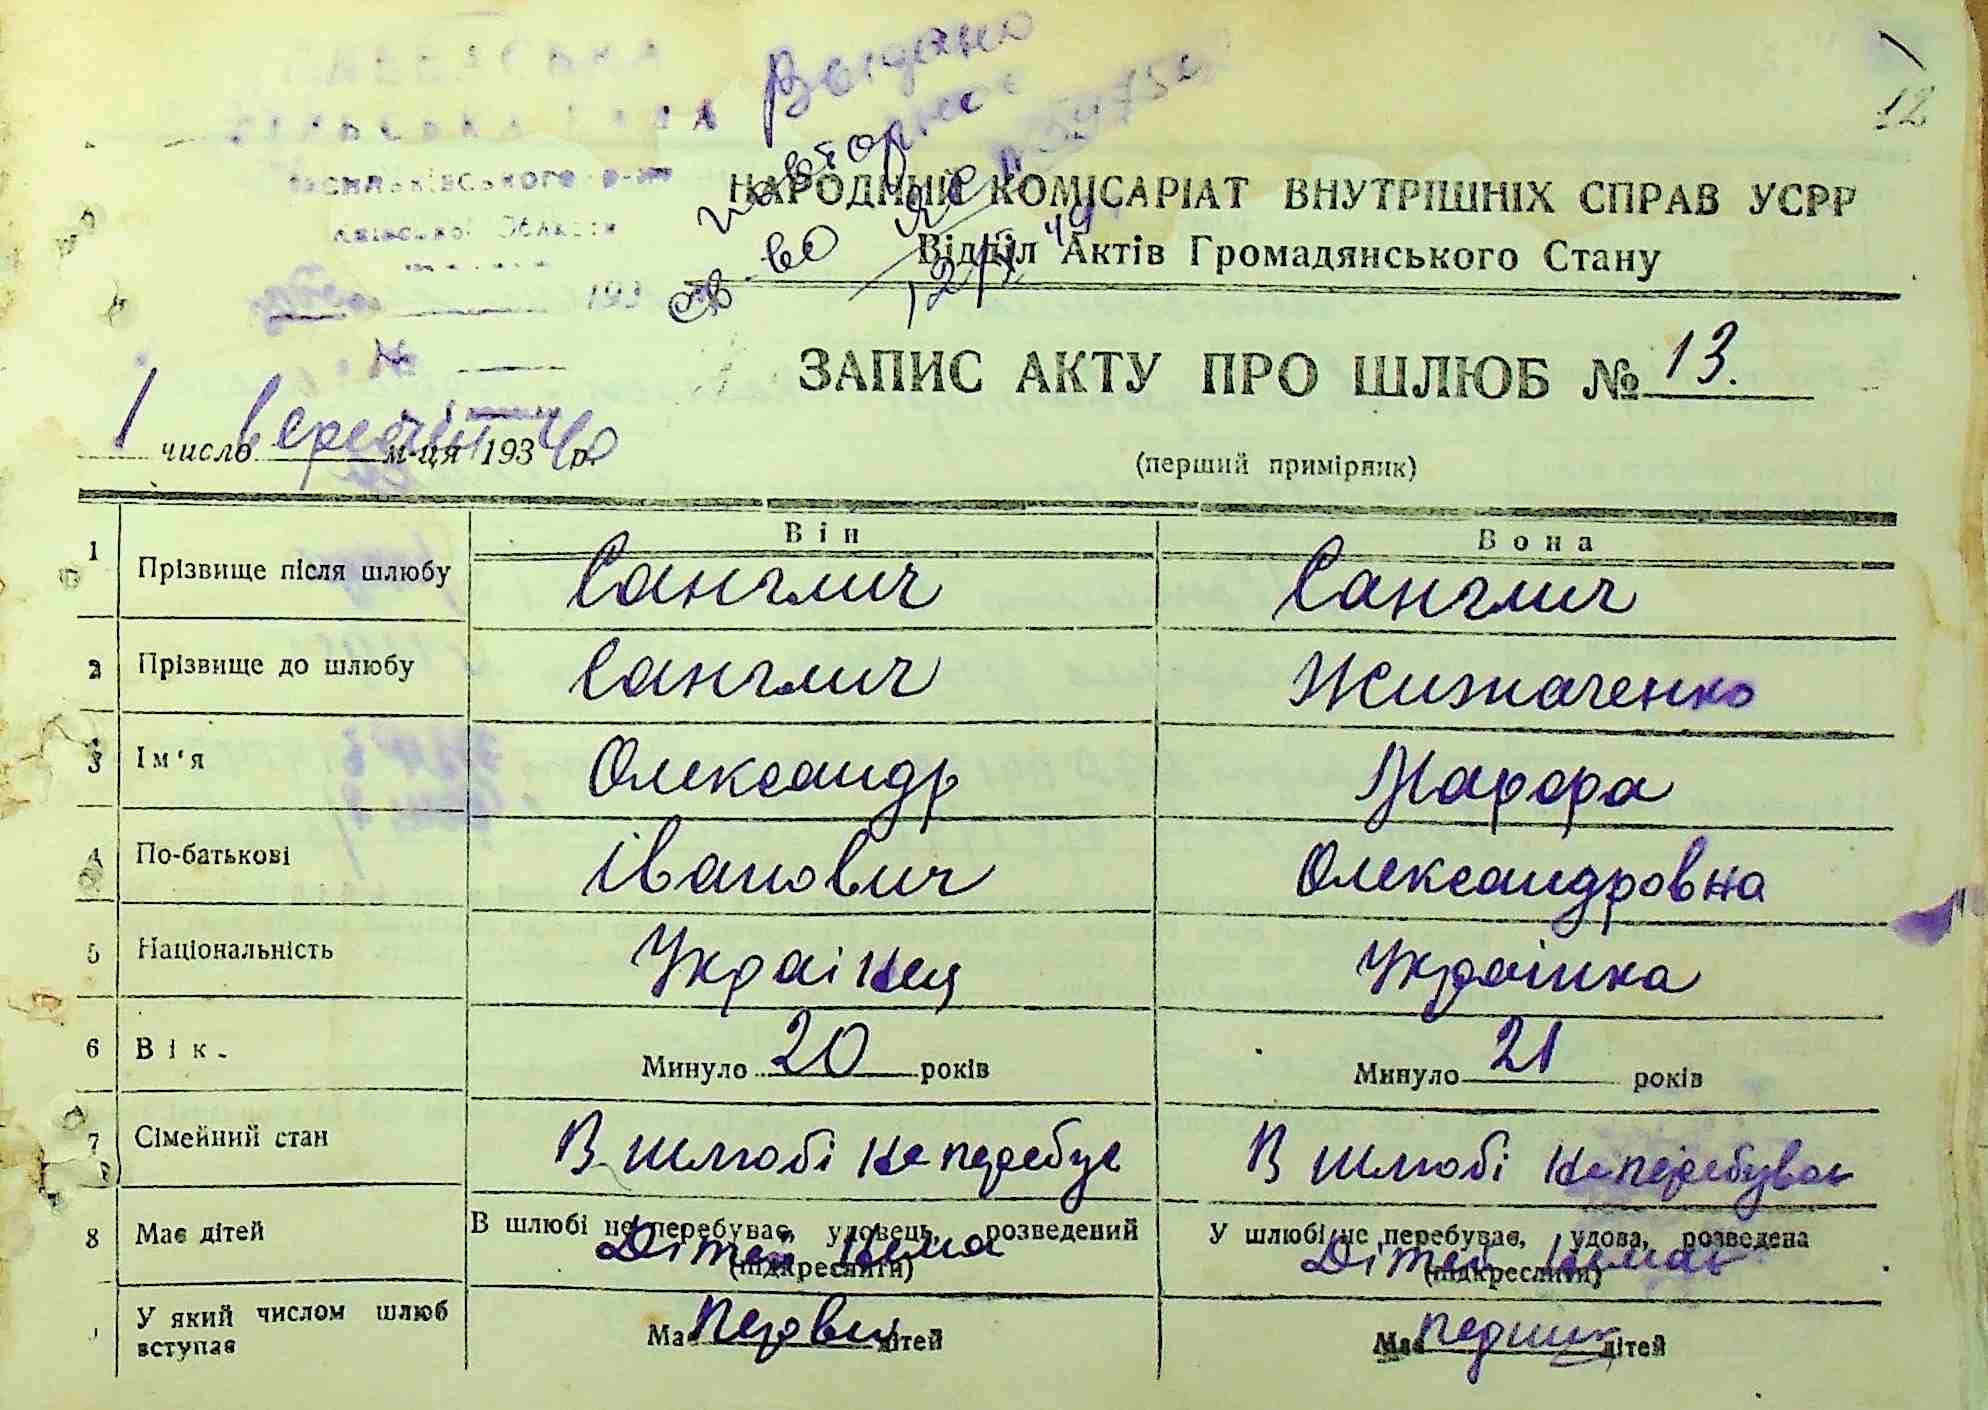 Выдано
повторное
св-во
12
НАРОДНИЙ КОМІСАРІАТ ВНУТРІШНІХ СПРАВ УСРР
Відділ Актів Громадянського Стану
Васильківського р-ну
Київської Області
193
ЗАПИС АКТУ ПРО ШЛЮБ № 13.
1 число вересня м-ця 1934 40 р.
(перший примірник)
Він Вона
1 Прізвище після шлюбу Санглич Санглич
2 Прізвище до шлюбу Санглич Жизначенко
3 Ім'я Олександр Марфа
4 По-батькові Іванович Олександровна
5 Національність Українец Українка
6 Вік. Минуло 20 років Минуло 21 років
7 Сімейний стан В шлюбі не перебує В шлюбі не перебуває
8 Має дітей В шлюбі не перебуває, удовець, розведений У шлюбі не перебуває, удова, розведена
Дітей нема Дітей немає
(підкреслити) (підкреслити)
У який числом шлюб вступає Має Первий дітей Має перший дітей